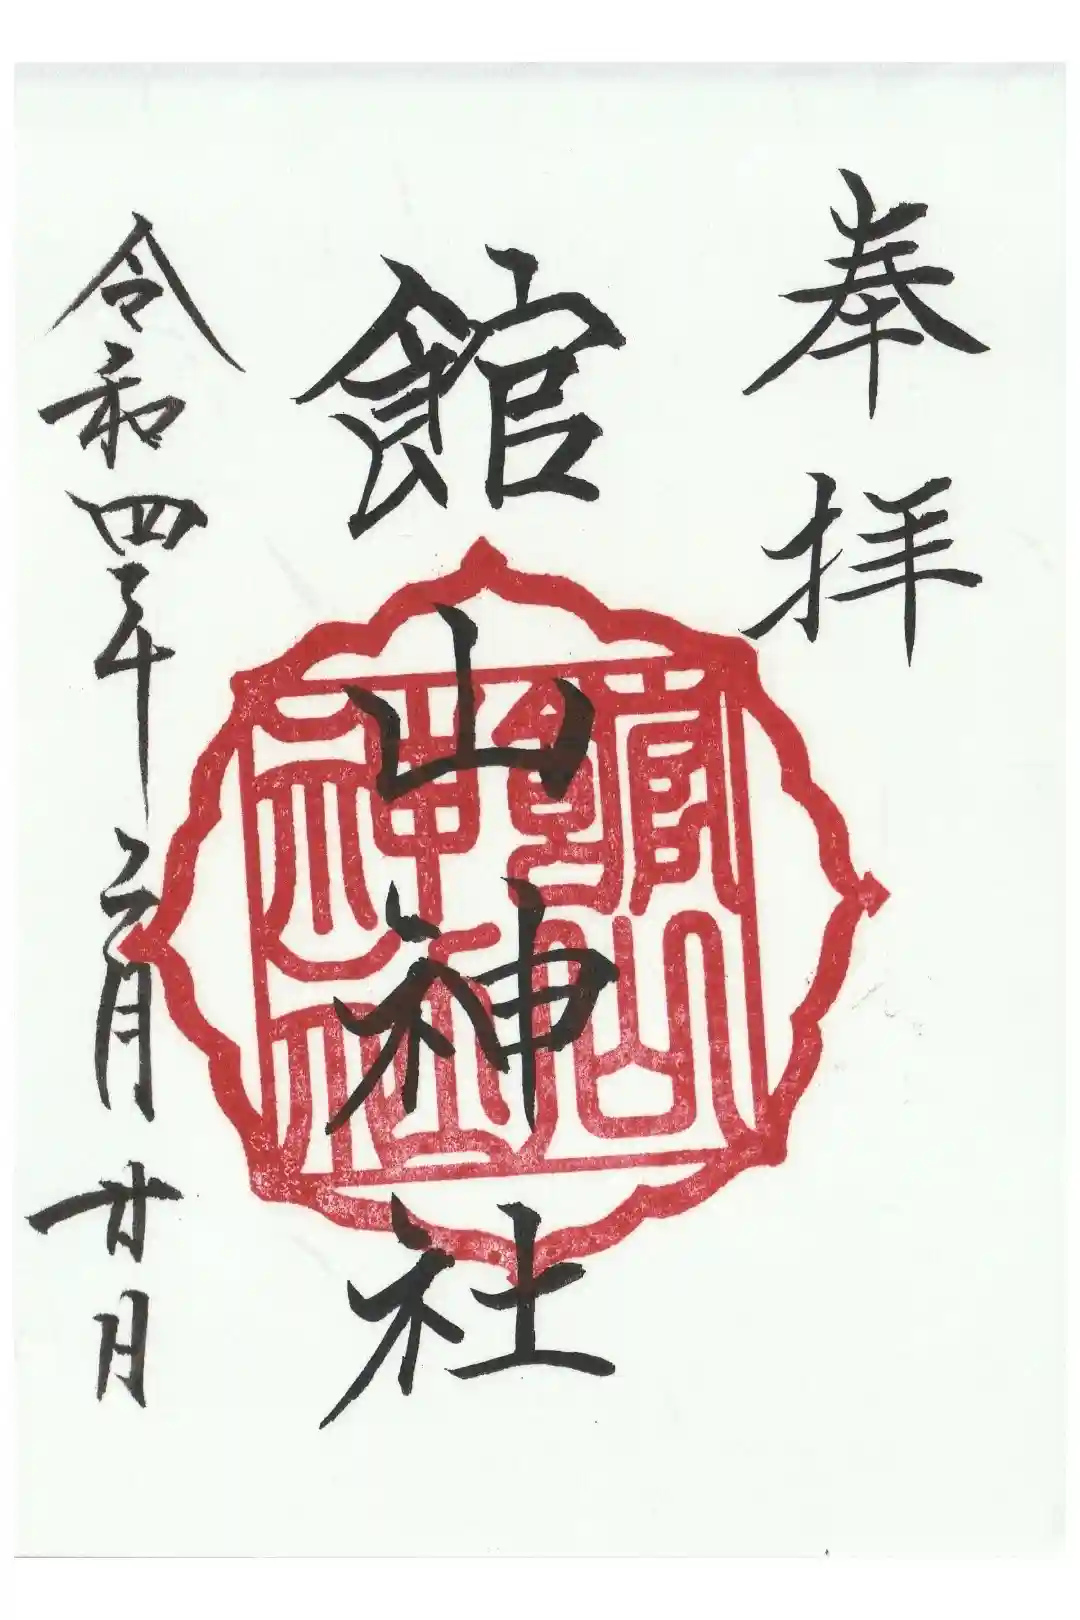 奉拝
館山神社
令和四年三月廿日
館山
神社